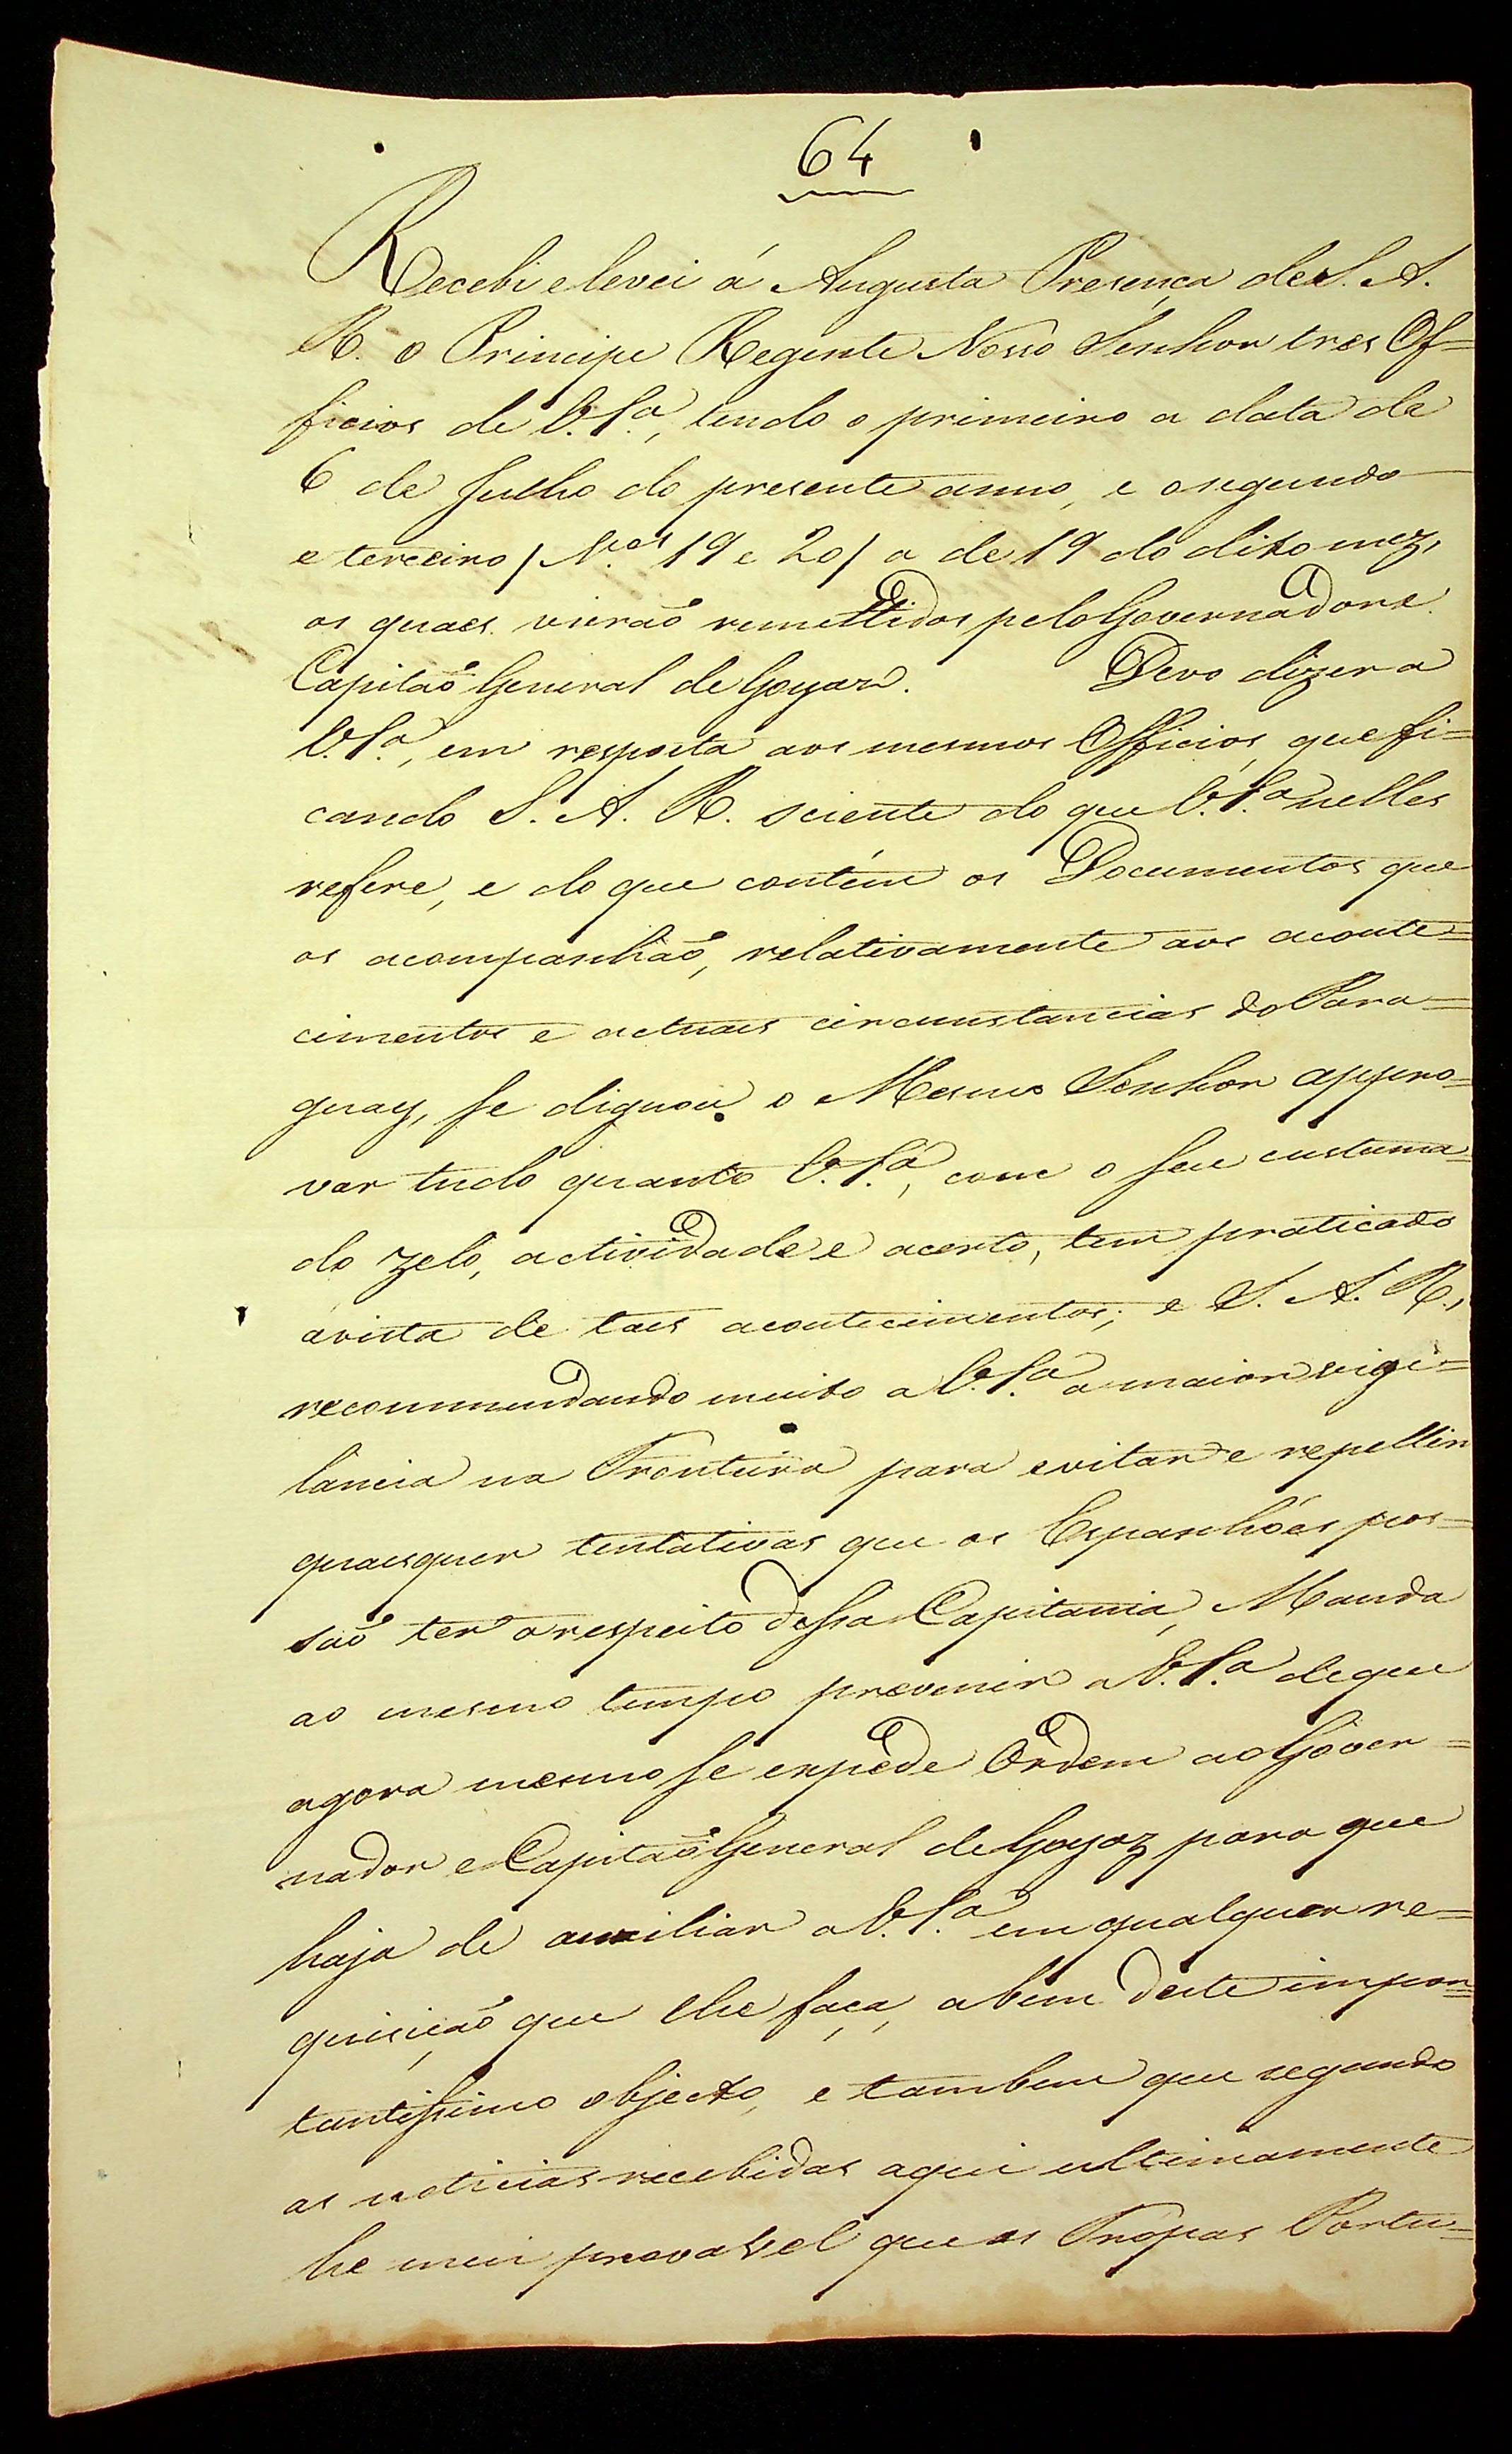 64
Recebi e levei á Augusta Presença de S. A.
R. o Principe Regente Nosso Senhor tres Of=
ficios de V. Sª, tendo o primeiro a data de
6 de Julho do presente anno, e o segundo
e terceiro / N.os 19 e 20 / a de 19 do dito mez,
os quaes vierão remettidos pelo Governador e
Capitaõ General de Goyaz. Devo dizer a
V. Sª, em resposta aos mesmos Officios, que fi=
cando S. A. R. sciente do que V. Sª nelles
refere, e do que contém os Documentos que
os acompanhaõ, relativamente aos aconte=
cimentos e actuaes circunstancias do Para=
guay, se dignou o Mesmo Senhor appro=
var tudo quanto V. Sª, com o seu custuma=
do zelo, actividade e acerto, tem praticado
ávista de taes acontecimentos; e S. A. R.,
recommendando muito a V. Sª a maior vigi=
lancia na Fronteira para evitar e repellir
quaesquer tentativas que os Espanhóes pos=
saõ ter a respeito dessa Capitania, Manda
ao mesmo tempo prevenir a V. Sª de que
agora mesmo se expede Ordem ao Gover=
nador e Capitaõ General de Goyaz para que
haja de auxiliar a V. Sª em qualquer re=
quisiçaõ que lhe faça, a bem deste impor=
tantissimo objecto, e tambem que segundo
as noticias recebidas aqui ultimamente
he mui provavel que as Tropas Portu=